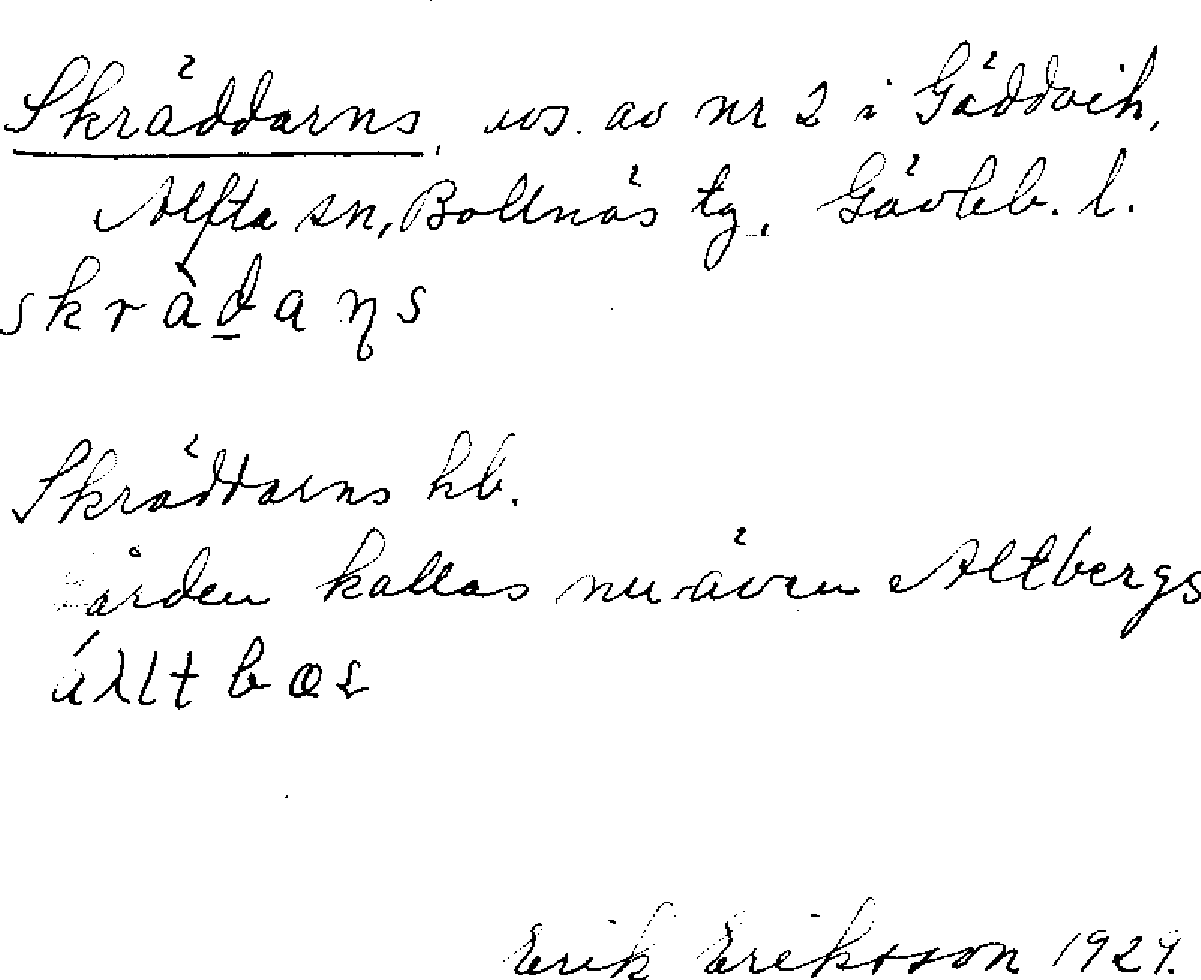 Skräddarns, us. av nr 2 i Gäddvik,
Alfta sn, Bollnäs tg, Gävleb. l.
skràd̲aṇs
Skräddarns hb.
Gården kallas nu även Altbergs
Erik Eriksson 1929.